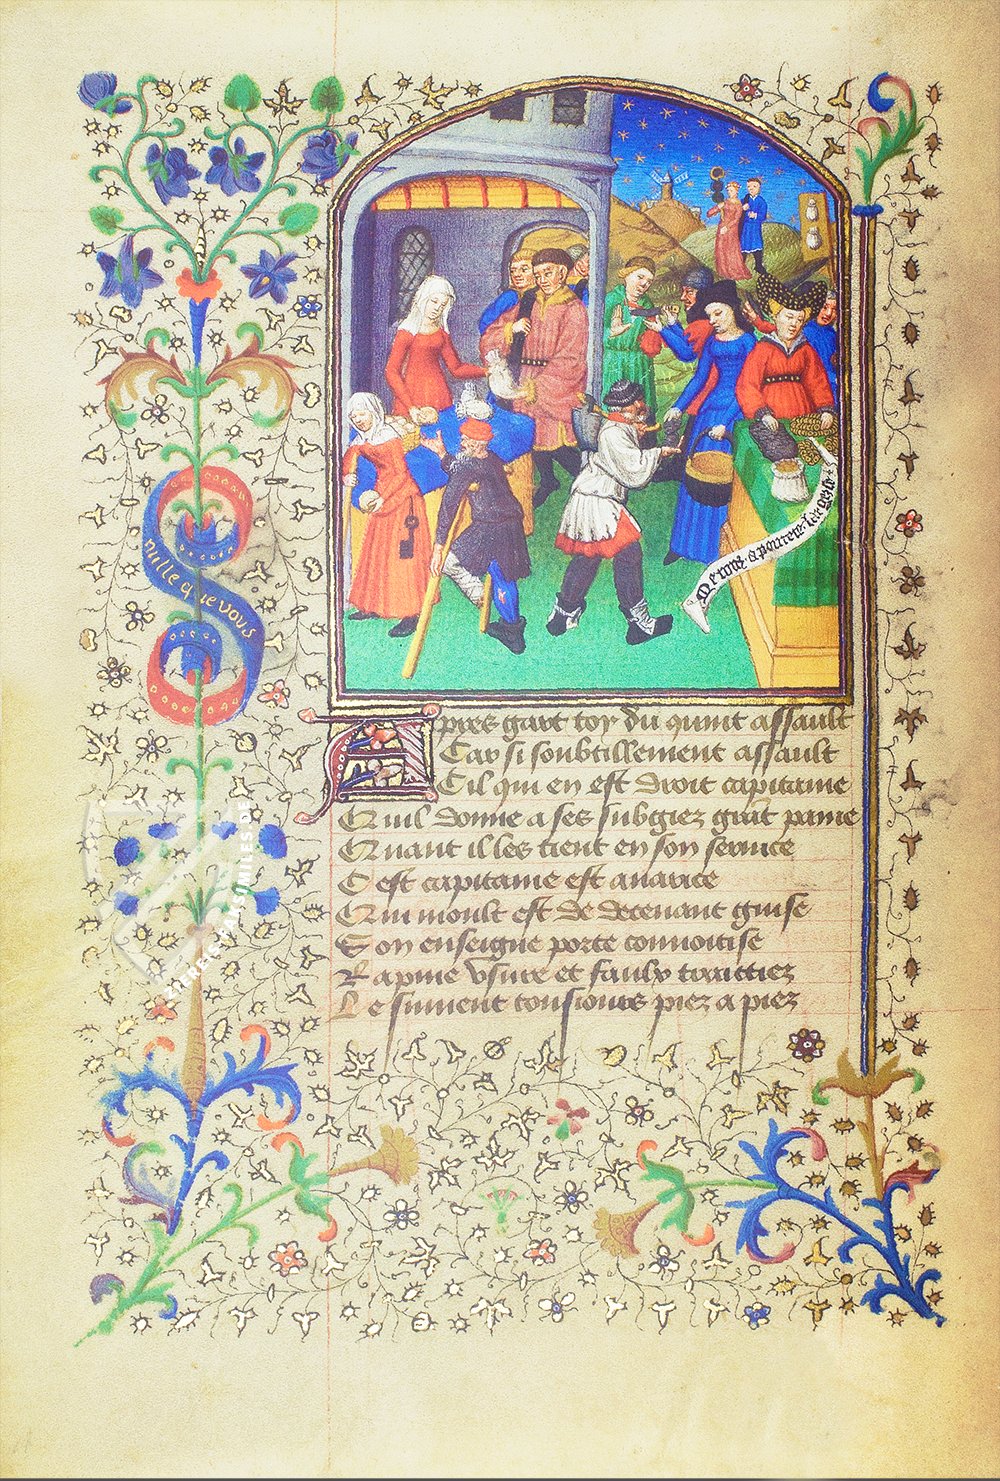 nulle que vous
Apres gart toy du quint assault
Car si soubtillement assault
Cil qui en est droit capitaine
Quil donne a ses subgiez grāt paine
Quant il les tient en son seruice
Cest capitaine est auarice
Qui moult est de deceuant guise
Son enseigne porte conuoitise
Rapine vsure et faulx traictiez
Le siuuent tousiours piez a piez